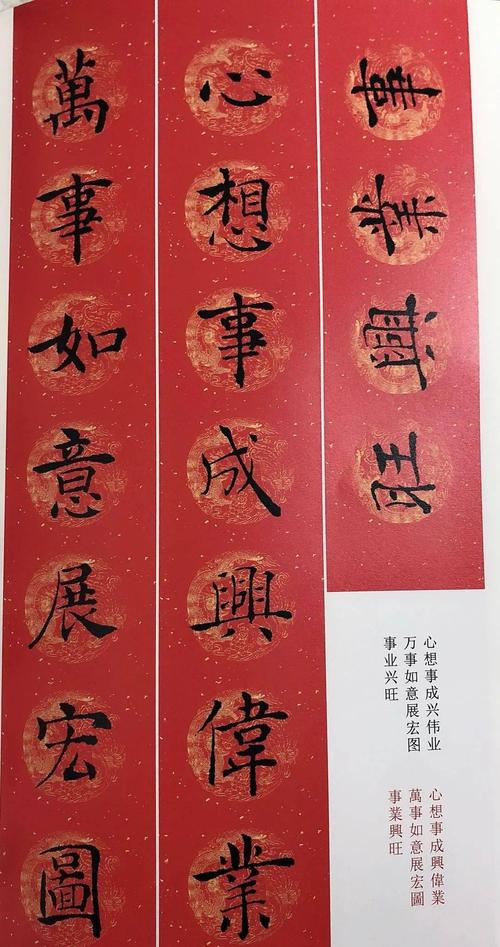 事業興旺
心想事成興偉業
萬事如意展宏圖
心想事成兴伟业
万事如意展宏图
事业兴旺
心想事成興偉業
萬事如意展宏圖
事業興旺